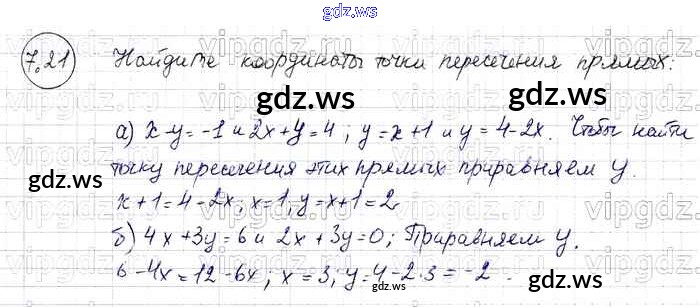 gdz.ws
7.21 Найдите координаты точки пересечения прямых:
gdz.ws gdz.ws
а) x-y=-1 и 2x+y=4; y=x+1 и y=4-2x. Чтобы найти
точку пересечения этих прямых приравняем y.
gdz.ws gdz.ws
x+1=4-2x; x=1, y=x+1=2
б) 4x+3y=6 и 2x+3y=0; Приравняем y.
6-4x=12-6x; x=3; y=4-2·3=-2.
gdz.ws gdz.ws